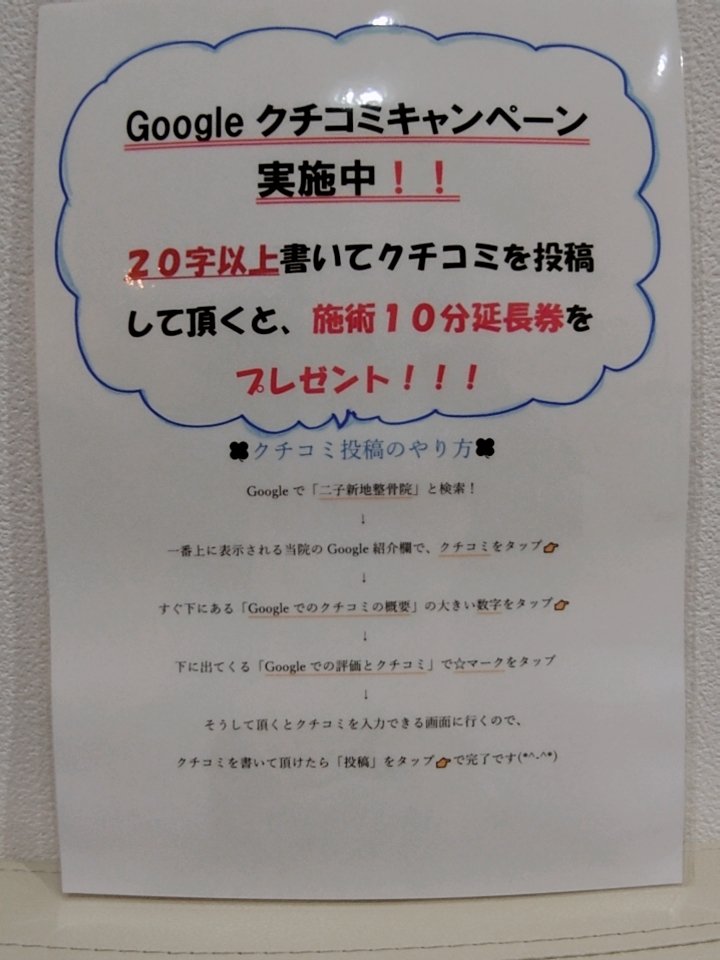 Google クチコミキャンペーン
実施中！！
２０字以上書いてクチコミを投稿
して頂くと、施術１０分延長券を
プレゼント！！！
🍀クチコミ投稿のやり方🍀
Googleで「二子新地整骨院」と検索！
↓
一番上に表示される当院のGoogle紹介欄で、クチコミをタップ👉
↓
すぐ下にある「Googleでのクチコミの概要」の大きい数字をタップ👉
↓
下に出てくる「Googleでの評価とクチコミ」で☆マークをタップ
↓
そうして頂くとクチコミを入力できる画面に行くので、
クチコミを書いて頂けたら「投稿」をタップ👉で完了です(*^-^*)